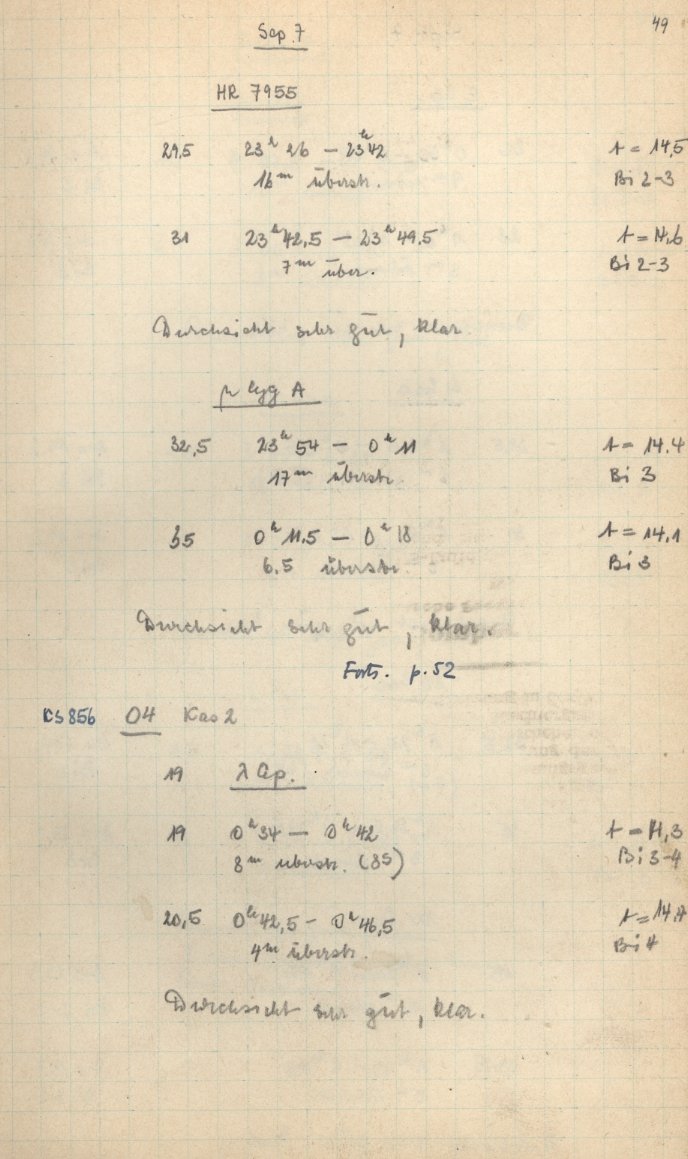 49
Sep. 7
HR 7955
29,5 23ʰ 26 — 23ʰ42 t = 14,5
16ᵐ überstr. Bi 2-3
31 23ʰ42,5 — 23ʰ49.5 t = 14,6
7ᵐ über. Bi 2-3
Durchsicht sehr gut, klar
μ Cyg A
32,5 23ʰ54 — 0ʰ11 t = 14.4
17ᵐ überstr. Bi 3
35 0ʰ11.5 — 0ʰ18 t = 14,1
6.5 überstr. Bi 3
Durchsicht sehr gut, klar.
Forts. p. 52
CS 856 O4 Kas 2
19 λ Ap.
19 0ʰ34 — 0ʰ42 t = 14,3
8ᵐ überstr. (85) Bi 3-4
20,5 0ʰ42,5 — 0ʰ46,5
4ᵐ überstr. Bi 4
Durchsicht sehr gut, klar.